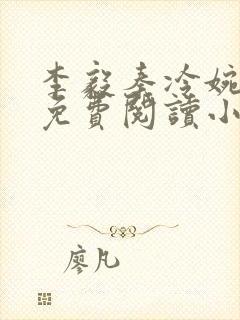 李毅秦冷婉
免費閱讀小
廖凡